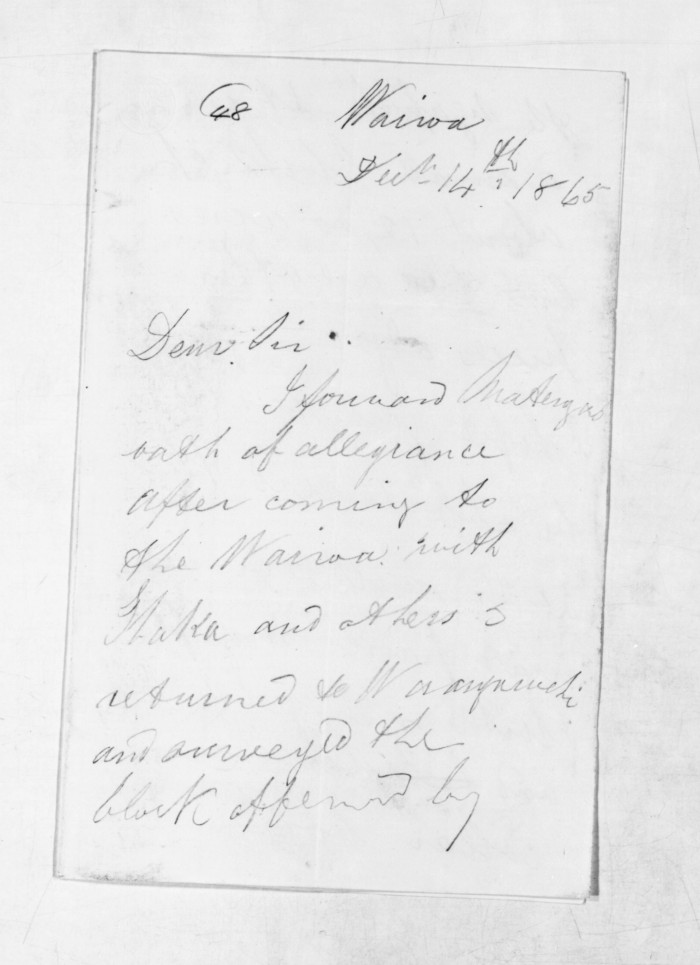 48 Wairoa
Decr 14th 1865
Dear Sir
I forward
oath of allegiance
after coming to
the Wairoa with
Ihaka and others I
returned to
and surveyed the
block offered by